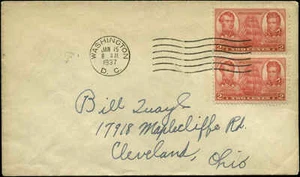 WASHINGTON
JAN 15
1937
D. C.
Bill Quayle
17918 Maplecliffe Rd.
Cleveland, Ohio